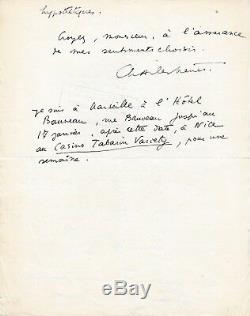 hypothétiques.
Croyez, monsieur, à l'assurance
de mes sentiments choisis.
je suis à Marseille à l'Hôtel
Bauveau, rue Bauveau jusqu'au
17 janvier, après cette date, à Nice
au Casino Tabarin Variety, pour une
semaine.